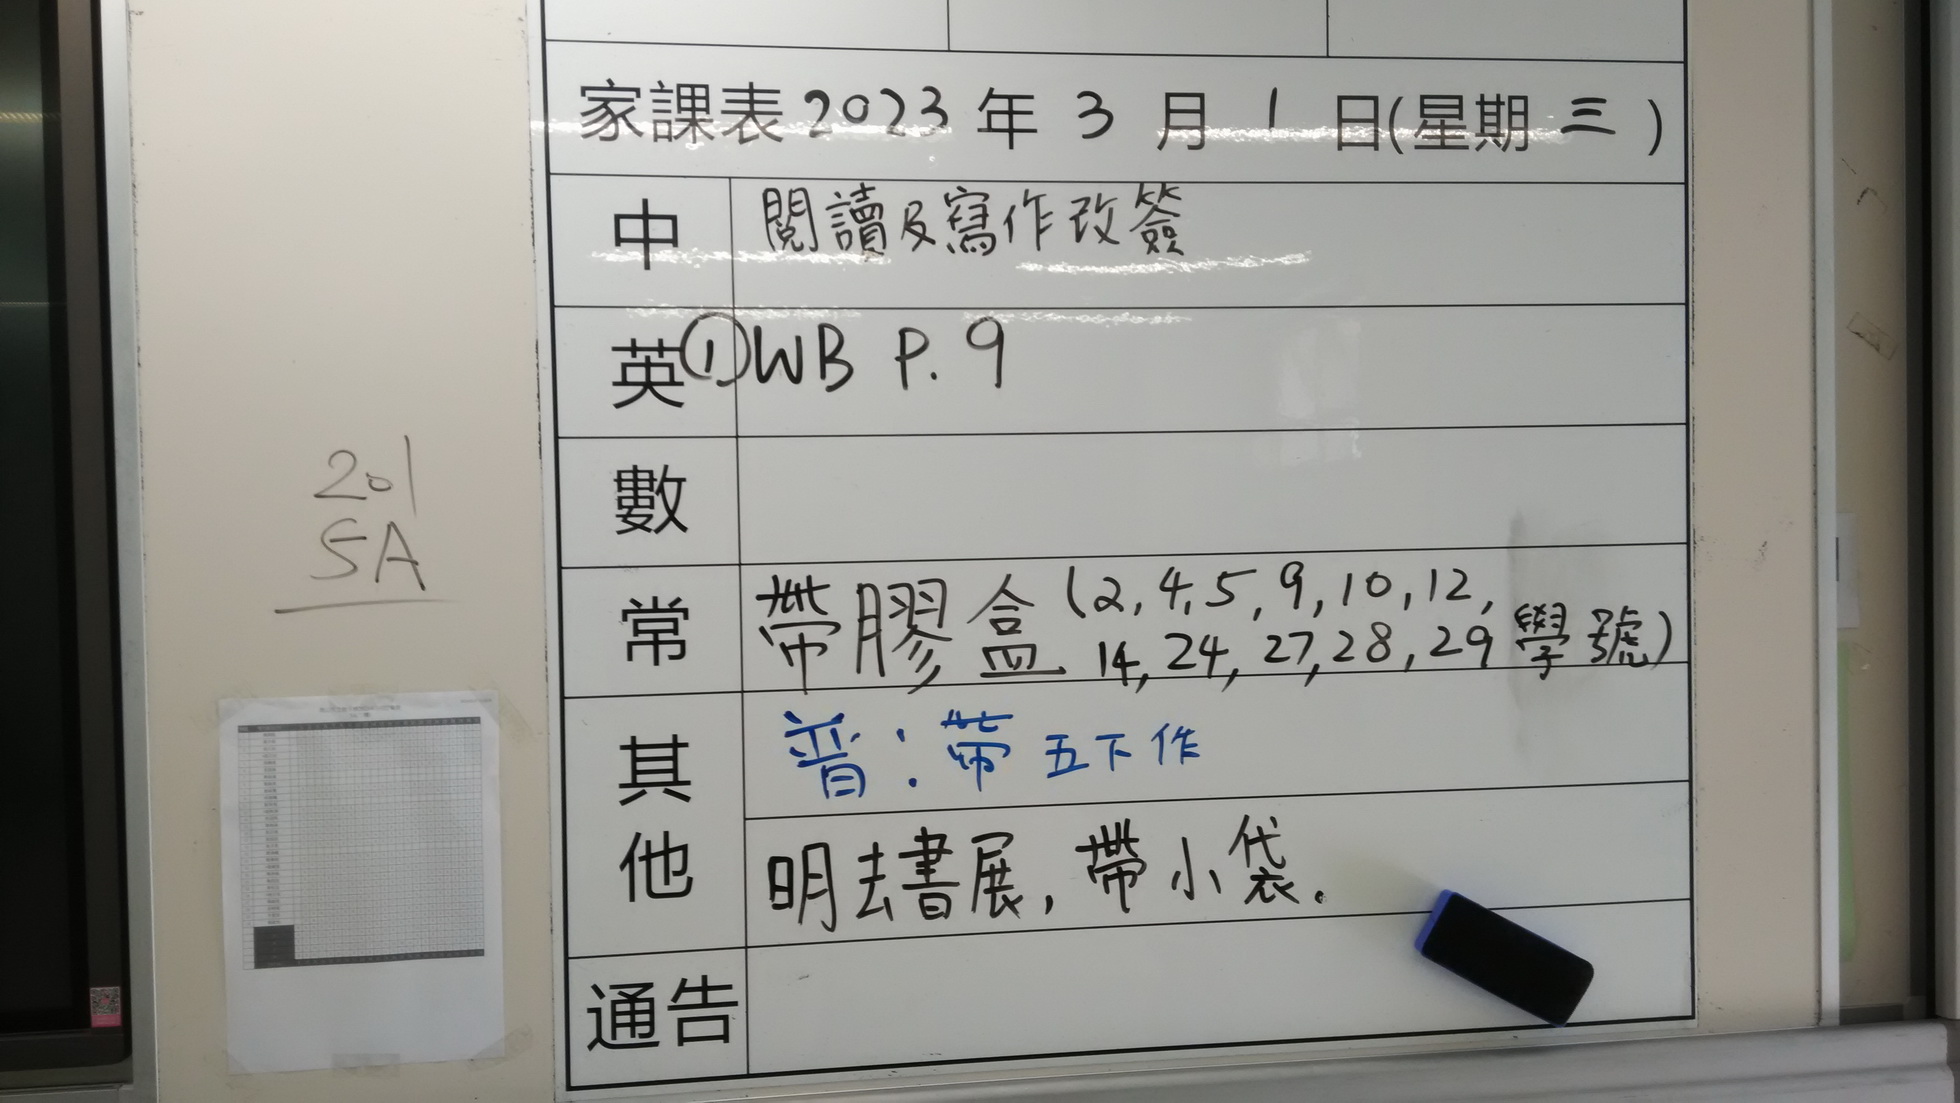 家課表2023年3月1日(星期三)
中 閱讀及寫作改簽
英 ①WB P.9
數
常 帶膠盒(2,4,5,9,10,12,
14,24,27,28,29學號)
其他
普:帶五下作
明去書展,帶小袋.
通告
201
5A